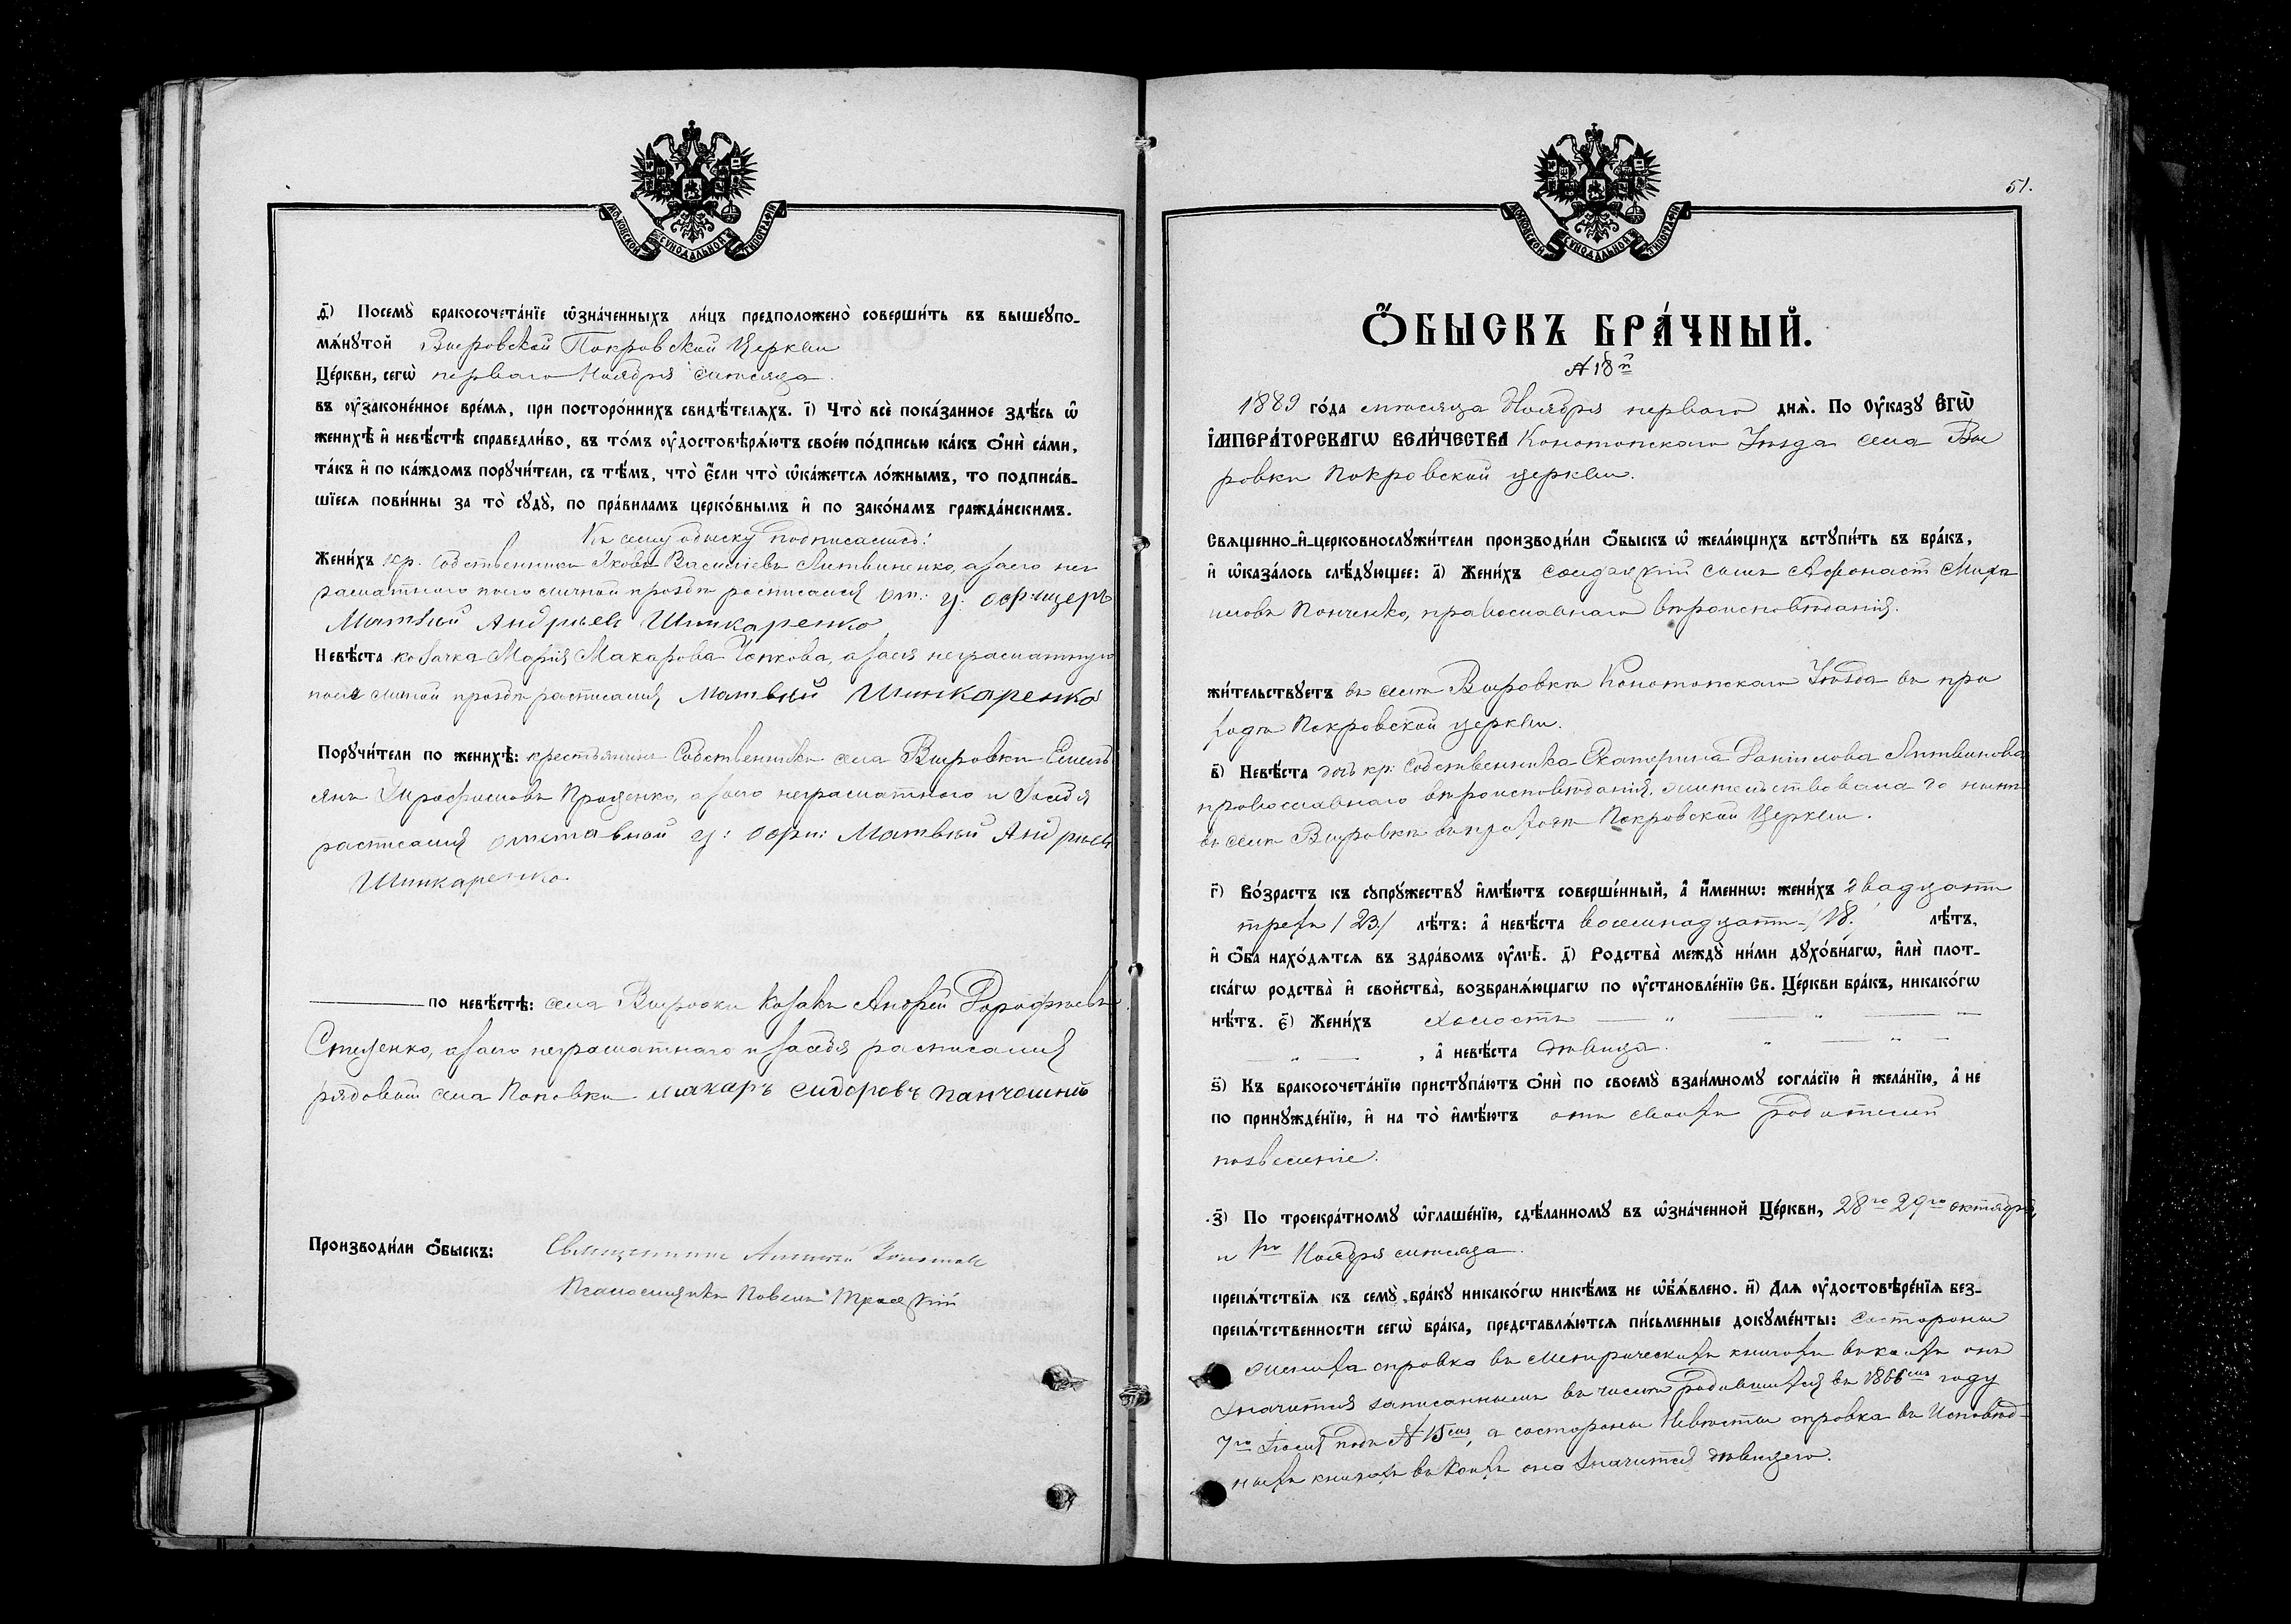 МОСКОВСКОЙ СѴНОДАЛЬНОЙ ТИПОГРАФІИ
д҃) Посемꙋ̀ бракосочета́нїе ѡ҆зна́ченныхъ ли́цъ предположено̀ соверши́ть въ вышеꙋпо-
мѧ́нꙋтой Выровской Покровской Церкви
Це́ркви, сегѡ̀ перваго Ноября сего мѣсяца
въ ᲂу҆зако́ненное вре́мѧ, при посторо́ннихъ свидѣ́телѧхъ. і҃) Что̀ всѐ пока́занное здѣ́сь ѡ҆
женихѣ̀ и҆ невѣ́стѣ справедли́во, въ то́мъ ᲂу҆достовѣрѧ́ютъ свое́ю по́дписью ка́къ ѻ҆нѝ са́ми,
та́къ и҆ по ка́ждомъ порꙋчи́тели, съ тѣ́мъ, что̀ є҆́сли что̀ ѡ҆ка́жетсѧ ло́жнымъ, то подписа́в-
шїесѧ пови́нны за то̀ сꙋдꙋ̀, по пра́виламъ церко́внымъ и҆ по зако́намъ гражда́нскимъ.
Къ сему обыску подписались:
Жени́хъ кр. собственникъ Яковъ Васильевъ Литвиненко, а за него не
грамотнаго по его личной прозбѣ росписался от: у: офицеръ
Матвѣй Андрьевъ Шинкаренко
Невѣ́ста козачка Марія Макарова Чопкова, а за ея неграмотную
по ея личной прозбѣ расписался Матвѣй Шинкаренко
Порꙋчи́тели по женихѣ̀: крестьянинъ Собственникъ села Выровки Емель
янъ Трофимовъ Проценко, а за его неграмотнаго и за себя
расписался отставной у: офи: Матвѣй Андрьевъ
Шинкаренко
по невѣ́стѣ: села Выровки козакъ Андрей Дорофѣевъ
Стеценко, а за его неграмотнаго и за себя расписался
рядовый села Поповки Макаръ Сидоровъ Панчошный
Производи́ли ѻ҆́быскъ: Священникъ
Псаломщикъ Павелъ
51.
МОСКОВСКОЙ СѴНОДАЛЬНОЙ ТИПОГРАФІИ
Ѻ҆́БЫСКЪ БРА́ЧНЫЙ.
№ 18й
1889 го́да мѣсяца Ноября перваго днѧ̀. По ᲂу҆ка́зꙋ є҆гѡ̀
і҆мпера́торскагѡ вели́чества Конотопскаго Уѣзда села Вы
ровки Покровской церкви.
Свѧщенно-и҆-церковнослꙋжи́тели производи́ли ѻ҆́быскъ ѡ҆ жела́ющихъ встꙋпи́ть въ бра́къ,
и҆ ѡ҆каза́лось слѣ́дꙋющее: а҃) Жени́хъ солдатскій сынъ Афонасій Миха
иловъ Понченко, православнаго вѣроисповѣданія.
жи́тельствꙋетъ въ селѣ Выровкѣ Конотопскаго Уѣзда въ при
ходѣ Покровской церкви.
в҃) Невѣ́ста дочь кр: собственника Екатерина Даніилова Литвинова
православнаго вѣроисповѣданія, жительствовала до нынѣ
въ селѣ Выровкѣ въ приходѣ Покровской Церкви.
г҃) Во́зрастъ къ сꙋпрꙋ́жествꙋ и҆мѣ́ютъ соверше́нный, а҆ и҆́меннѡ: жени́хъ двадцати
трехъ /23./ лѣ́тъ: а҆ невѣ́ста восемнадцати /18. лѣ́тъ,
и҆ ѻ҆́ба нахо́дѧтсѧ въ здра́вомъ ᲂу҆мѣ̀. д҃) Родства̀ междꙋ̀ ни́ми дꙋхо́внагѡ, и҆лѝ плот-
ска́гѡ родства̀ и҆ свойства̀, возбранѧ́ющагѡ по ᲂу҆становле́нїю Св. Це́ркви бра́къ, никако́гѡ
нѣ́тъ. є҃) Жени́хъ холостъ
, а҆ невѣ́ста дѣвица.
ѕ҃) Къ бракосочета́нїю пристꙋпа́ютъ ѻ҆нѝ по своемꙋ̀ взаи́мномꙋ согла́сїю и҆ жела́нїю, а҆ не
по принꙋжде́нїю, и҆ на то̀ и҆мѣ́ютъ они своихъ родителей
позволеніе.
з҃) По троекра́тномꙋ ѡ҆глаше́нїю, сдѣ́ланномꙋ въ ѡ҆зна́ченной Це́ркви, 28го 29го октября,
и 1го Ноября мѣсяца.
препѧ́тствїѧ къ семꙋ̀ бра́кꙋ никако́гѡ никѣ́мъ не ѡ҆б̾ѧ́влено. и҃) Длѧ ᲂу҆достовѣре́нїѧ без-
препѧ́тственности сегѡ̀ бра́ка, представлѧ́ютсѧ пи́сьменные докꙋме́нты: состороны
жениха справка въ метрическихъ книгахъ въ коихъ онъ
значится записаннымъ въ числѣ родившихся въ 1866мъ году
7го Іюля подъ № 15мъ, а состороны Невѣсты справка въ Исповѣд-
ныхъ книгахъ въ коихъ она значится дѣвицею.